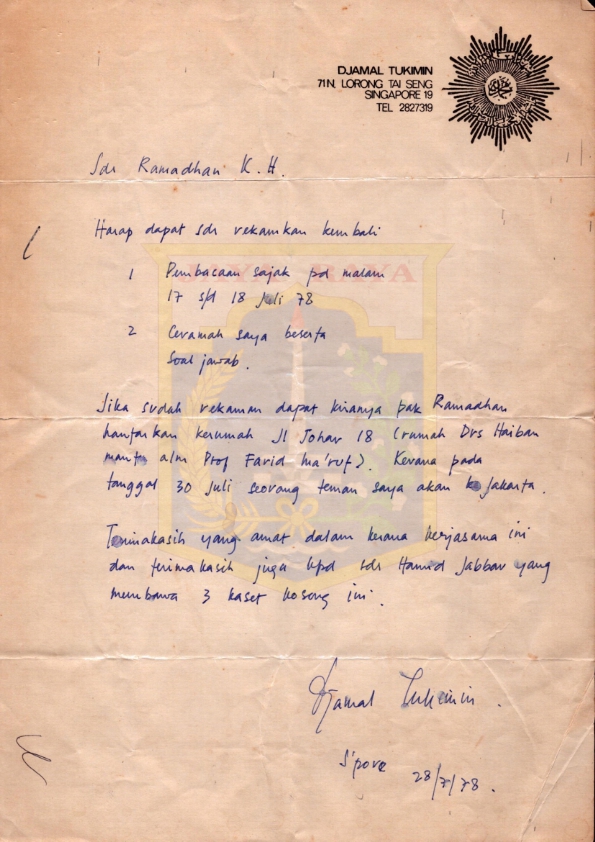 DJAMAL TUKIMIN
71N, LORONG TAI SENG
SINGAPORE 19
TEL 2827319
Sdr Ramadhan K.H.
Harap dapat sdr rekamkan kembali
1 Pembacaan sajak pd malam
17 s/d 18 Juli 78
2 Ceramah saya beserta
soal jawab.
Jika sudah rekaman dapat kiranya pak Ramadhan
hantarkan kerumah Jl Johar 18 (rumah Drs Haiban
mantu alm Prof Farid Ma'ruf). Kerana pada
tanggal 30 Juli seorang teman saya akan ke Jakarta.
Terimakasih yang amat dalam kerana kerjasama ini
dan terimakasih juga kpd sdr Hamid Jabbar yang
membawa 3 kaset kosong ini.
Djamal Tukimin.
S'pore 28/7/78.
JAYA RAYA